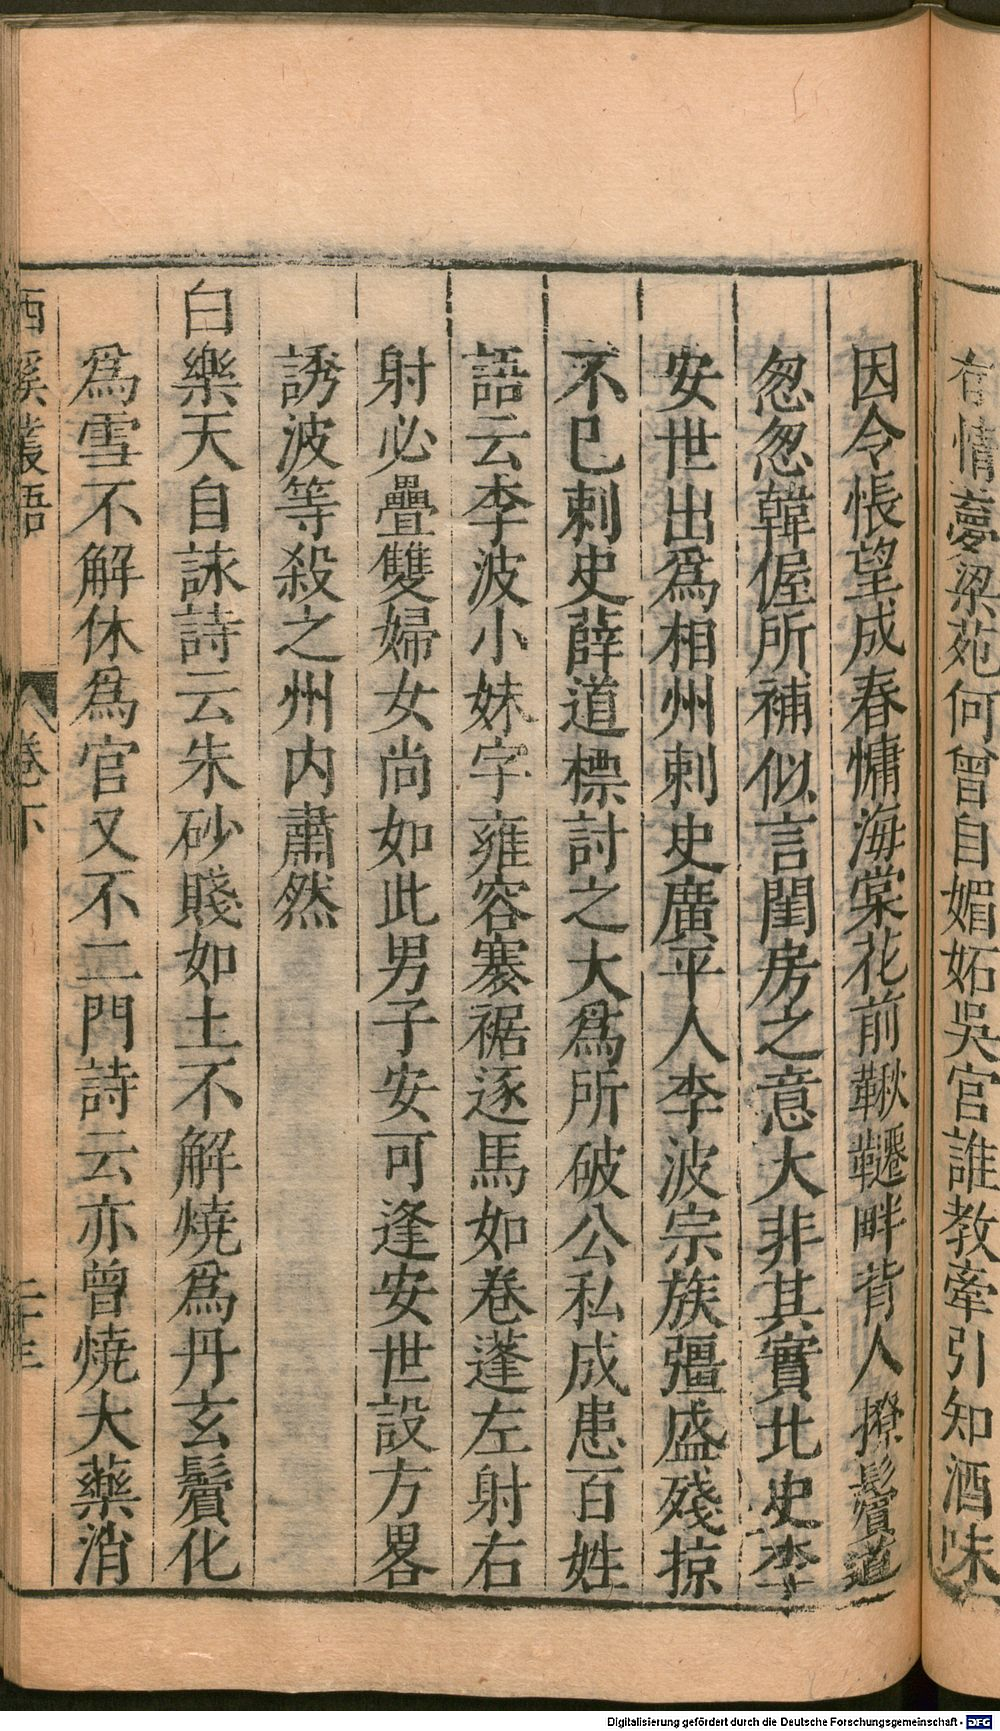 有情夢梁苑何曾自媚妬吳宫誰教牽引知酒味
因令悵望成春慵海棠花前鞦韆畔背人撩鬢道
怱怱韓偓所補似言閨房之意大非其實北史李
安世出爲相州刺史廣平人李波宗族彊盛殘掠
不已刺史薛道標討之大爲所破公私成患百姓
語云李波小妹字雍容褰裾逐馬如卷蓬左射右
射必疊雙婦女尚如此男子安可逢安世設方畧
誘波等殺之州内肅然
白樂天自詠詩云朱砂賤如土不解燒爲丹玄鬢化
爲雪不解休爲官又不二門詩云亦曾燒大藥消
西溪叢語
卷下
Digitalisierung gefördert durch die Deutsche Forschungsgemeinschaft - DFG